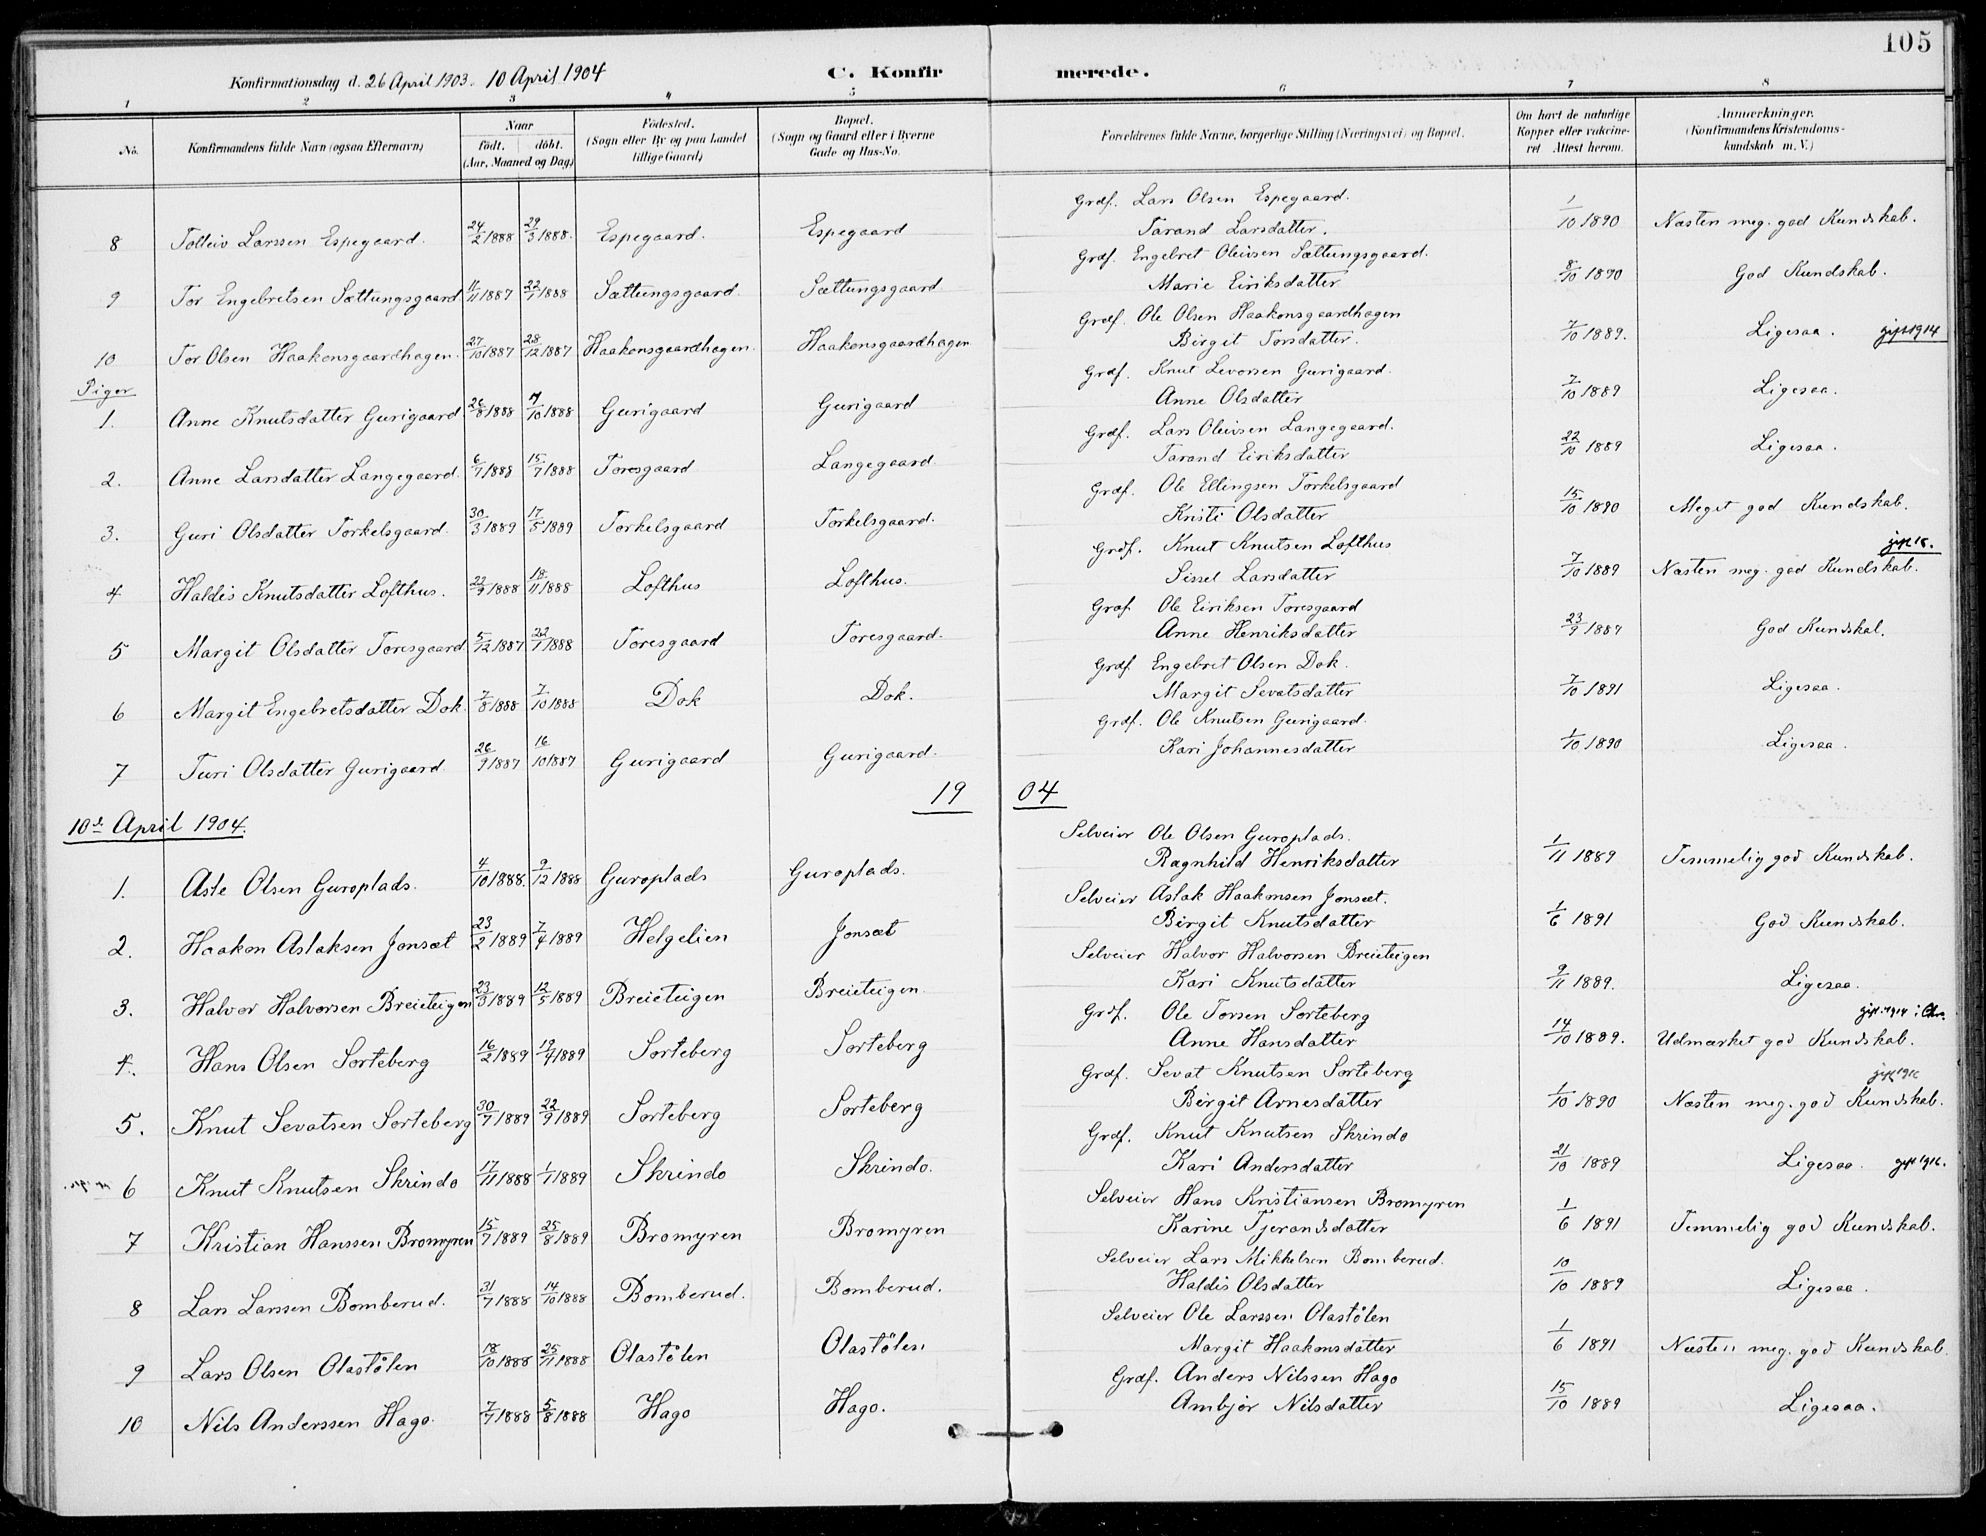 105
Konfirmationsdag d. 26 April 1903. 10 April 1904 C. Konfirmerede.
1 2 3 4 5 6 7 8
No. Konfirmandens fulde Navn (ogsaa Efternavn) Naar födt. döbt. (Aar, Maaned og Dag) Födested. (Sogn eller By og paa Landet tillige Gaard) Bopæl. (Sogn og Gaard eller i Byerne Gade og Hus-No. Forældrenes fulde Navne, borgerlige Stilling (Næringsvei) og Bopæl. Om havt de naturlige Kopper eller vakcineret Attest herom. Anmerkninger. (Konfirmandens Kristendomskundskab m. V.)
8 Tolleiv Larssen Espegaard. 24/2 1888 29/3 1888. Espegaard. Espegaard Grdf. Lars Olsen Espegaard. Tarand Larsdatter. 1/10 1890 Næsten meg. god Kundskab.
9 Tor Engebretsen Sættungsgaard 11/11 1887 22/1 1888 Sættungsgaard. Sættungsgaard Grdf. Engebret Oleivsen Sættungsgaard. Marie Eiriksdatter 8/10 1890 God Kundskab.
10 Tor Olsen Haakonsgaardhagen. 27/10 1887 28/12 1887 Haakonsgaardhagen. Haakonsgaardhagen Grdf. Ole Olsen Haakonsgaardhagen Birgit Torsdatter. 7/10 1889. Ligesaa. gift 1914
Piger
1. Anne Knutsdatter Gurigaard 26/8 1888 7/10 1888 Gurigaard Gurigaard Grdf. Knut Levorsen Gurigaard. Anne Olsdatter 7/10 1889 Ligesaa.
2. Anne Larsdatter Langegaard. 6/7 1888 15/7 1888 Toresgaard Langegaard Grdf. Lars Oleivsen Langegaard. Tarand Eiriksdatter 22/10 1889 Ligesaa.
3. Guri Olsdatter Torkelsgaard. 30/3 1889 17/5 1889 Torkelsgaard Torkelsgaard. Grdf. Ole Ellingsen Torkelsgaard Kristi Olsdatter 15/10 1890 Meget god Kundskab.
4 Haldis Knutsdatter Lofthus. 22/9 1888 18/11 1888 Lofthus Lofthus. Grdf. Knut Knutsen Lofthus Sissel Larsdatter 7/10 1889 Næsten meg. god Kundskab. gift 18.
5 Margit Olsdatter Toresgaard 5/12 1887 22/1 1888 Toresgaard Toresgaard. Grdf Ole Eiriksen Toresgaard Anne Henriksdatter 23/9 1889 God Kundskab.
6 Margit Engebretsdatter Dok. 7/8 1888 7/10 1888 Dok Dok. Grdf. Engebret Olsen Dok. Margit Sevatsdatter 7/10 1891 Ligesaa.
7 Turi Olsdatter Gurigaard. 26/9 1887 16/10 1887 Gurigaard Gurigaard. Grdf. Ole Knutsen Gurigaard. Kari Johannesdatter 1/10 1890 Ligesaa.
19 04
10de April 1904.
1. Asle Olsen Guroplads. 4/10 1888. 9/12 1888 Guroplads Guroplads. Selveier Ole Olsen Guroplads. Ragnhild Henriksdatter 1/11 1889 Temmelig god Kundskab.
2. Haakon Aslaksen Jonsæt 23/2 1889 7/4 1889 Helgelien Jonsæt Selveier Aslak Haakonsen Jonsæt. Birgit Knutsdatter 1/6 1891 God Kundskab.
3. Halvor Halvorsen Breieteigen 23/3 1889 12/5 1889 Breieteigen Breieteigen. Selveier Halvor Halvorsen Breieteigen Kari Knutsdatter 9/11 1889. Ligesaa.
4. Hans Olsen Sorteberg 16/2 1889 19/4 1889 Sorteberg Sorteberg Grdf. Ole Torsen Sorteberg Anne Hansdatter 14/10 1889. Udmærket god Kundskab. gift 1914 i
5. Knut Sevatsen Sorteberg 30/7 1889 22/9 1889 Sorteberg Sorteberg Grdf. Sevat Knutsen Sorteberg Birgit Arnesdatter 1/10 1890 Næsten meg. god Kundskab. gift 191
6 Knut Knutsen Skrindo 17/11 1888 1/1 1889 Skrindo Skrindo. Grdf. Knut Knutsen Skrindo Kari Andersdatter 21/10 1889 Ligesaa. gift 1916.
7 Kristian Hanssen Bromyren 15/7 1889 25/8 1889 Bromyren Bromyren Selveier Hans Kristiansen Bromyren Karine Tjerandsdatter 1/6 1891 Temmelig god Kundskab.
8 Lars Larssen Bomberud. 31/7 1888 14/10 1888 Bomberud. Bomberud. Selveier Lars Mikkelsen Bomberud. Haldis Olsdatter 10/10 1889 Ligesaa.
9 Lars Olsen Olastölen 18/10 1888 25/11 1888 Olastölen Olastölen Selveier Ole Larssen Olastölen Margit Haakonsdatter 1/6 1891 Næsten meg. god Kundskab.
10 Nils Anderssen Hago. 7/7 1888 5/8 1888 Hago Hago. Grdf. Anders Nilssen Hago Ambjör Nilsdatter 15/10 1889 Ligesaa.